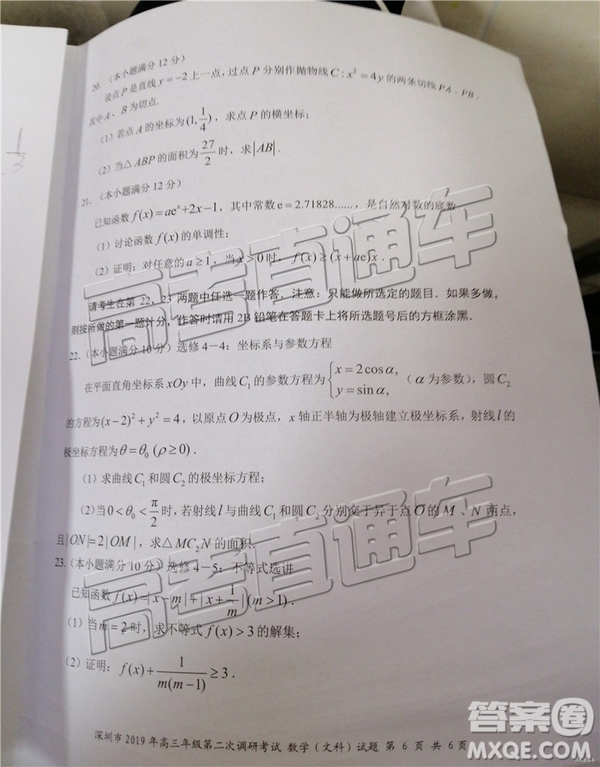 20. （本小题满分 12 分）
设点 P 是直线 y=−2 上一点，过点 P 分别作抛物线 C: x²=4y 的两条切线 PA、PB，
其中 A、B 为切点.
（1）若点 A 的坐标为(1, 1/4)，求点 P 的横坐标；
（2）当△ABP 的面积为 27/2 时，求|AB|.
21. （本小题满分 12 分）
已知函数 f(x)=aeˣ+2x−1，其中常数 e=2.71828……，是自然对数的底数.
（1）讨论函数 f(x) 的单调性；
（2）证明：对任意的 a≥1，当 x>0 时，f(x)≥(x+ae)x.
请考生在第 22、23 两题中任选一题作答，注意：只能做所选定的题目．如果多做，
则按所做的第一题计分，作答时请用 2B 铅笔在答题卡上将所选题号后的方框涂黑.
22. （本小题满分 10 分）选修 4－4：坐标系与参数方程
在平面直角坐标系 xOy 中，曲线 C₁ 的参数方程为 { x=2cosα, y=sinα, （α 为参数），圆 C₂
的方程为(x−2)²+y²=4，以原点 O 为极点，x 轴正半轴为极轴建立极坐标系，射线 l 的
极坐标方程为 θ=θ₀ (ρ≥0).
（1）求曲线 C₁ 和圆 C₂ 的极坐标方程；
（2）当 0<θ₀<π/2 时，若射线 l 与曲线 C₁ 和圆 C₂ 分别交于异于点 O 的 M、N 两点，
且|ON|=2|OM|，求△MC₂N 的面积.
23. （本小题满分 10 分）选修 4－5：不等式选讲
已知函数 f(x)=|x−m|+|x+1/m| (m>1).
（1）当 m=2 时，求不等式 f(x)>3 的解集；
（2）证明：f(x)+1/(m(m−1))≥3.
深圳市 2019 年高三年级第二次调研考试 数学（文科）试题 第 6 页 共 6 页
高考直通车
高考直通车
答案圈
MXQE.COM